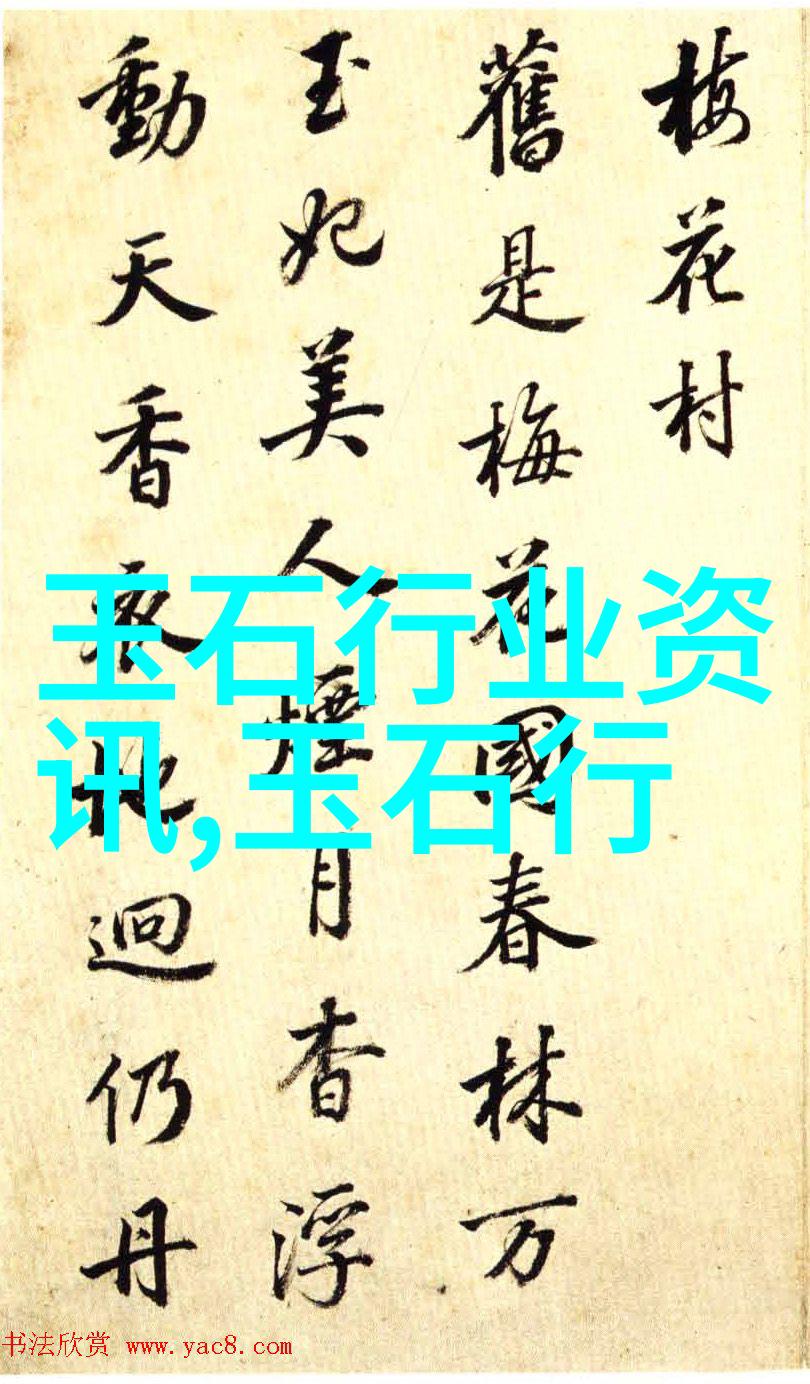 梅花村
舊是梅花國春林万
玉妃美人煙月杳浮
動天香夜地迥仍丹
玉石行业资
讯,玉石行
书法欣赏 www.yac8.com